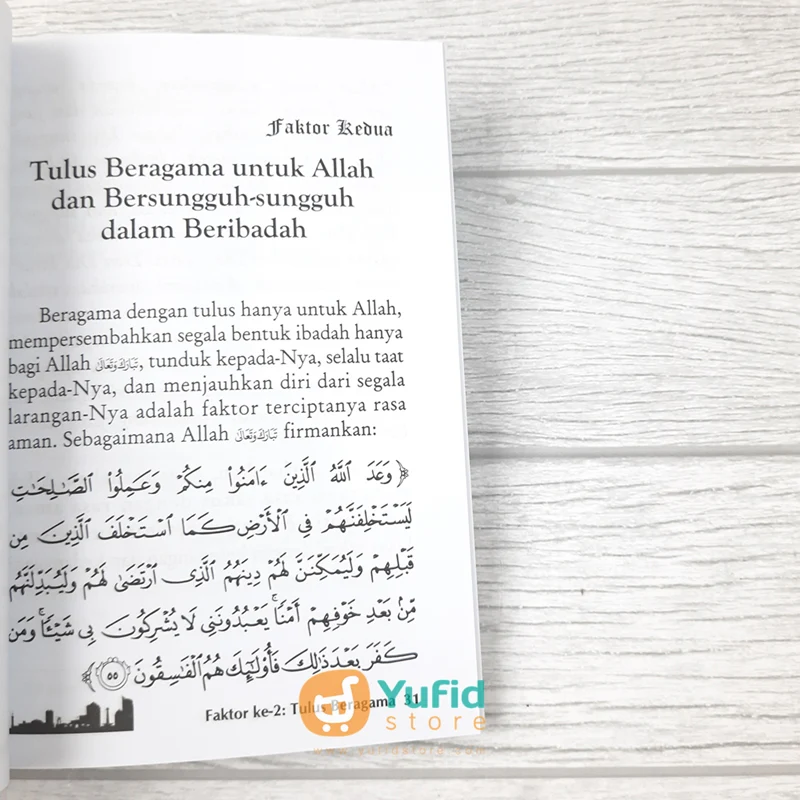 Faktor Kedua
Tulus Beragama untuk Allah
dan Bersungguh-sungguh
dalam Beribadah
Beragama dengan tulus hanya untuk Allah,
mempersembahkan segala bentuk ibadah hanya
bagi Allah تَبَارَكَ وَتَعَالَى, tunduk kepada-Nya, selalu taat
kepada-Nya, dan menjauhkan diri dari segala
larangan-Nya adalah faktor terciptanya rasa
aman. Sebagaimana Allah تَبَارَكَ وَتَعَالَى firmankan:
﴿ وَعَدَ اللَّهُ الَّذِينَ ءَامَنُوا۟ مِنكُمْ وَعَمِلُوا۟ الصَّـٰلِحَـٰتِ
لَيَسْتَخْلِفَنَّهُمْ فِى الْأَرْضِ كَمَا اسْتَخْلَفَ الَّذِينَ مِن
قَبْلِهِمْ وَلَيُمَكِّنَنَّ لَهُمْ دِينَهُمُ الَّذِى ارْتَضَىٰ لَهُمْ وَلَيُبَدِّلَنَّهُم
مِّنۢ بَعْدِ خَوْفِهِمْ أَمْنًا ۚ يَعْبُدُونَنِى لَا يُشْرِكُونَ بِى شَيْـًٔا ۚ وَمَن
كَفَرَ بَعْدَ ذَٰلِكَ فَأُو۟لَـٰٓئِكَ هُمُ الْفَـٰسِقُونَ ٥٥ ﴾
Faktor ke-2: Tulus Beragama 31
Yufid
store